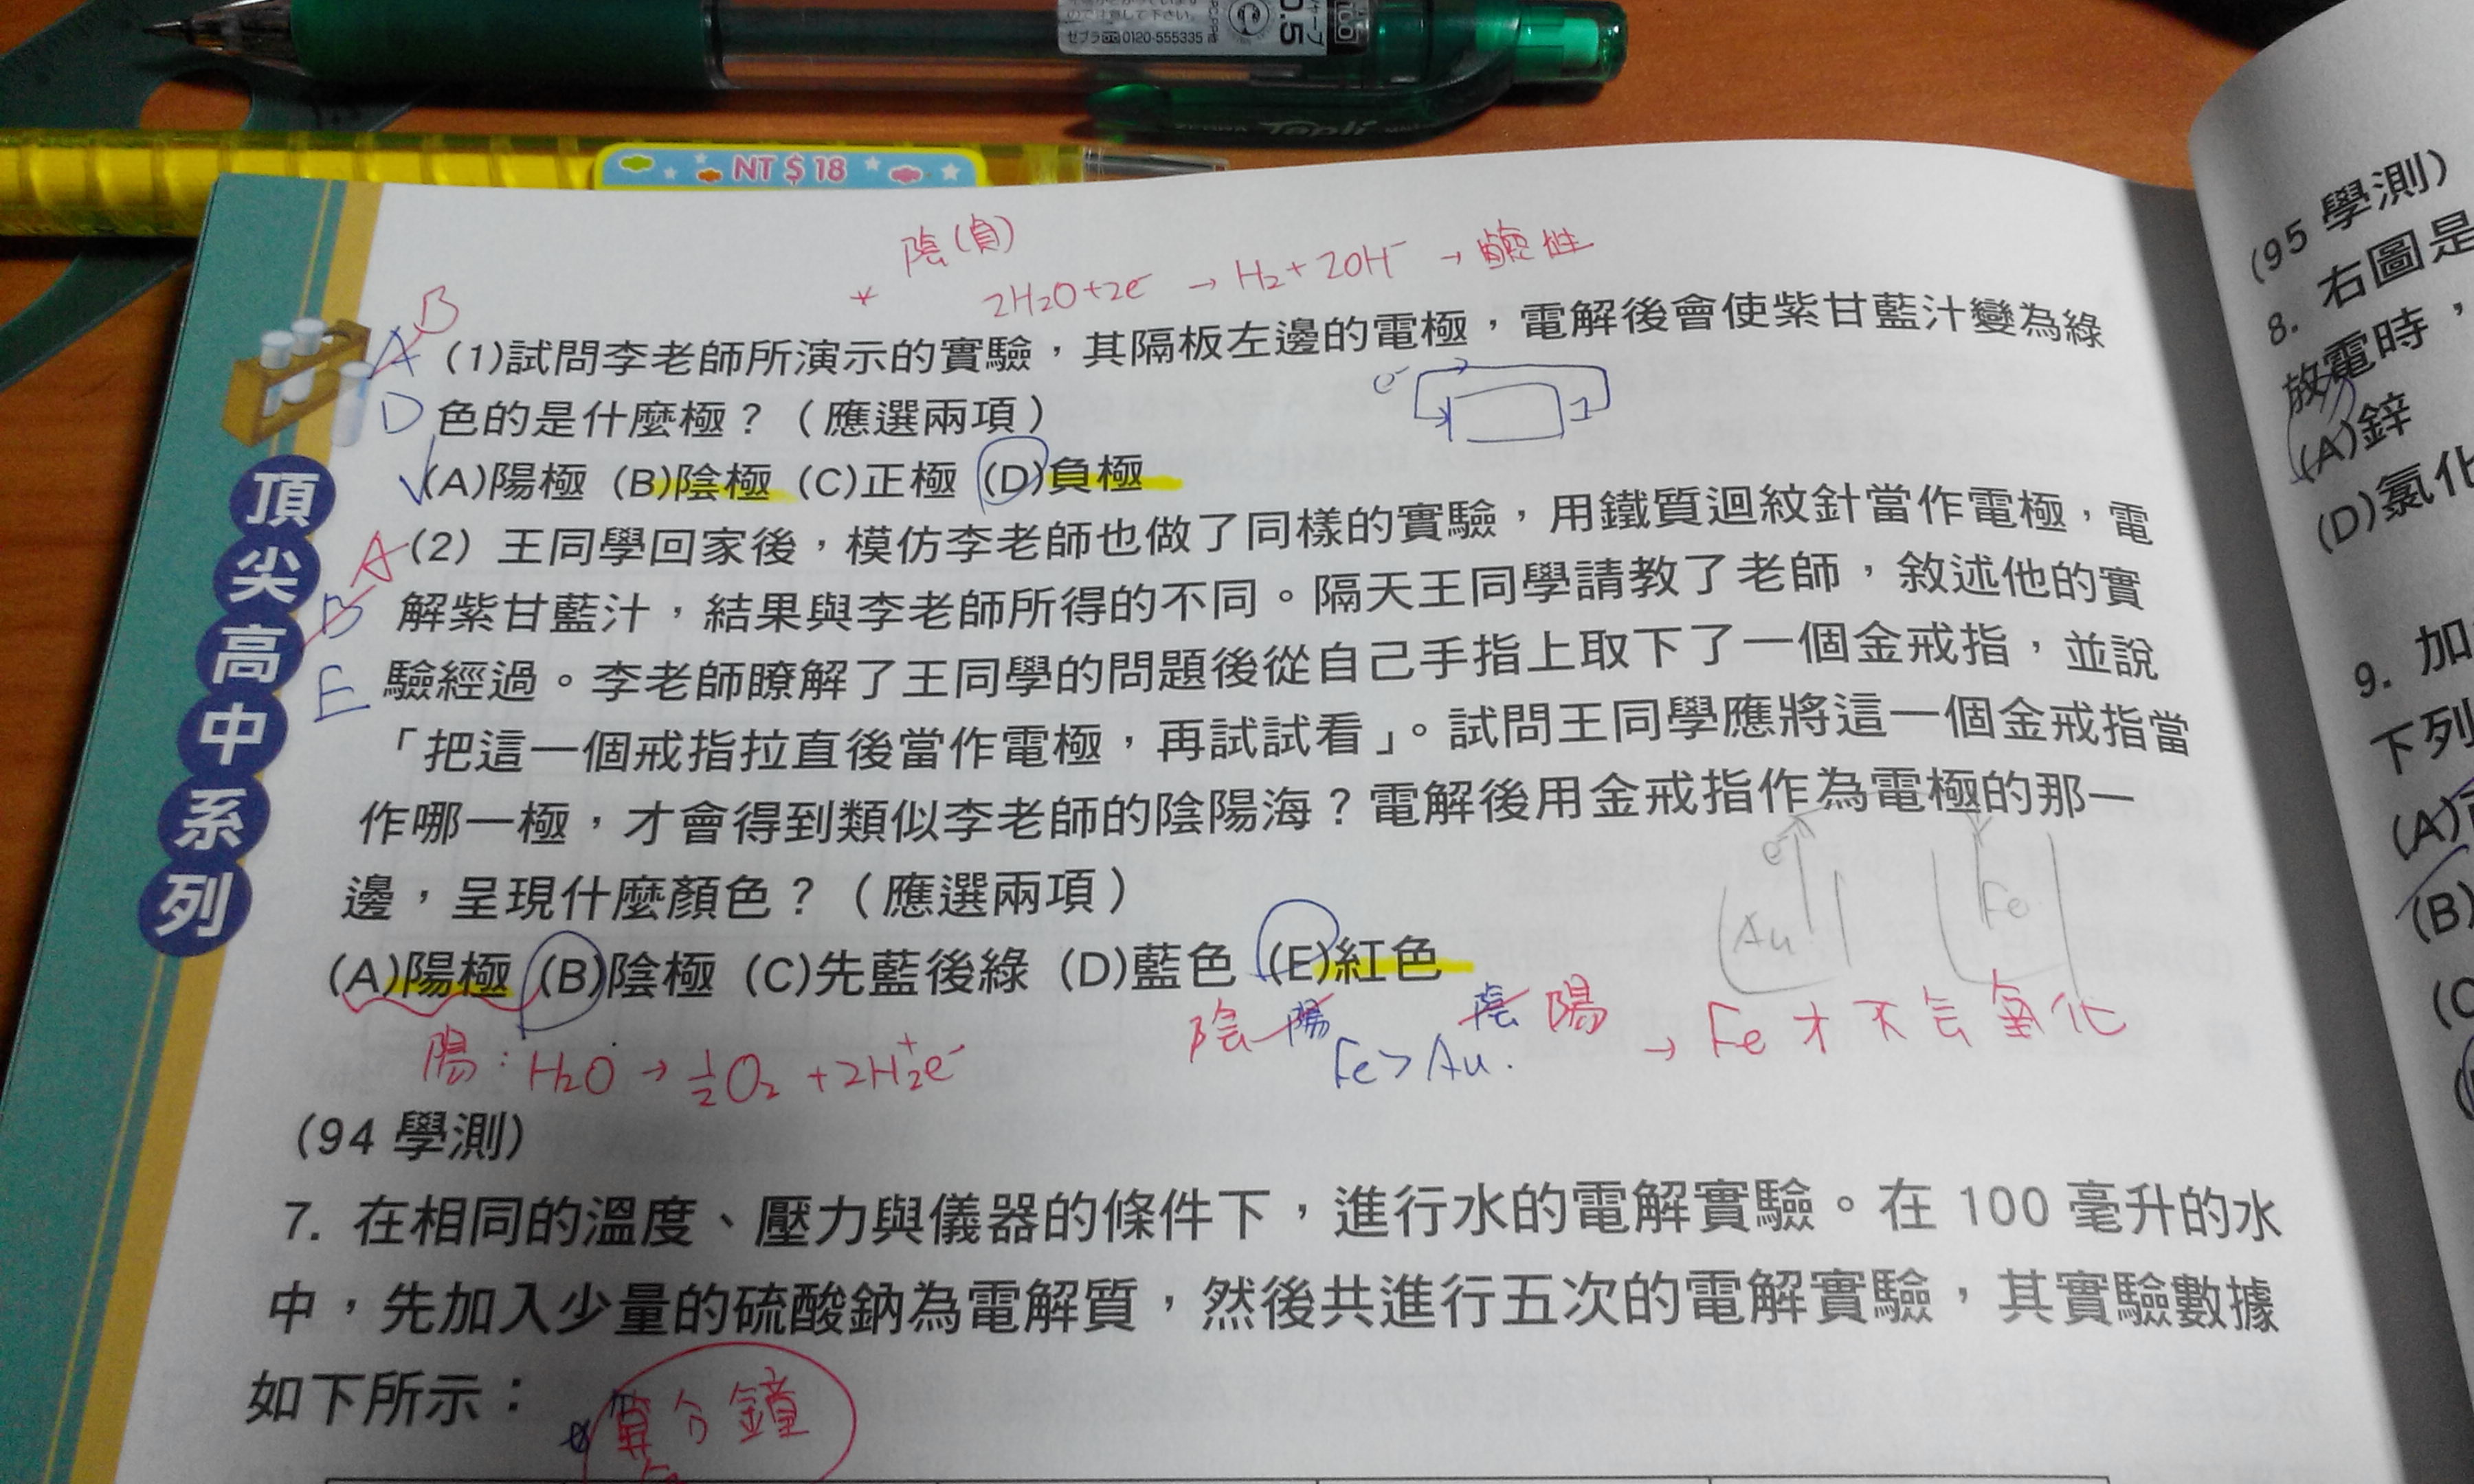 ゼブラ 0120-555335
0.5
ZEBRA Tapli
NT $ 18
陰(負)
* 2H₂O+2e⁻ → H₂+2OH⁻ → 鹼性
B
A (1)試問李老師所演示的實驗，其隔板左邊的電極，電解後會使紫甘藍汁變為綠
e⁻
D 色的是什麼極？（應選兩項）
(A)陽極 (B)陰極 (C)正極 (D)負極
A (2) 王同學回家後，模仿李老師也做了同樣的實驗，用鐵質迴紋針當作電極，電
B 解紫甘藍汁，結果與李老師所得的不同。隔天王同學請教了老師，敘述他的實
E 驗經過。李老師瞭解了王同學的問題後從自己手指上取下了一個金戒指，並說
「把這一個戒指拉直後當作電極，再試試看」。試問王同學應將這一個金戒指當
作哪一極，才會得到類似李老師的陰陽海？電解後用金戒指作為電極的那一
邊，呈現什麼顏色？（應選兩項）
e⁻
Au Fe
(A)陽極 (B)陰極 (C)先藍後綠 (D)藍色 (E)紅色
陰 陽 陰 陽
Fe > Au. → Fe 才不会氧化
陽: H₂O → ½O₂ + 2H⁺ 2e⁻
(94 學測)
7. 在相同的溫度、壓力與儀器的條件下，進行水的電解實驗。在 100 毫升的水
中，先加入少量的硫酸鈉為電解質，然後共進行五次的電解實驗，其實驗數據
如下所示：
算分鐘
頂尖高中系列
(95 學測)
8. 右圖是
放電時，
(A)鋅
(D)氯化
9. 加
下列
(A)
(B)